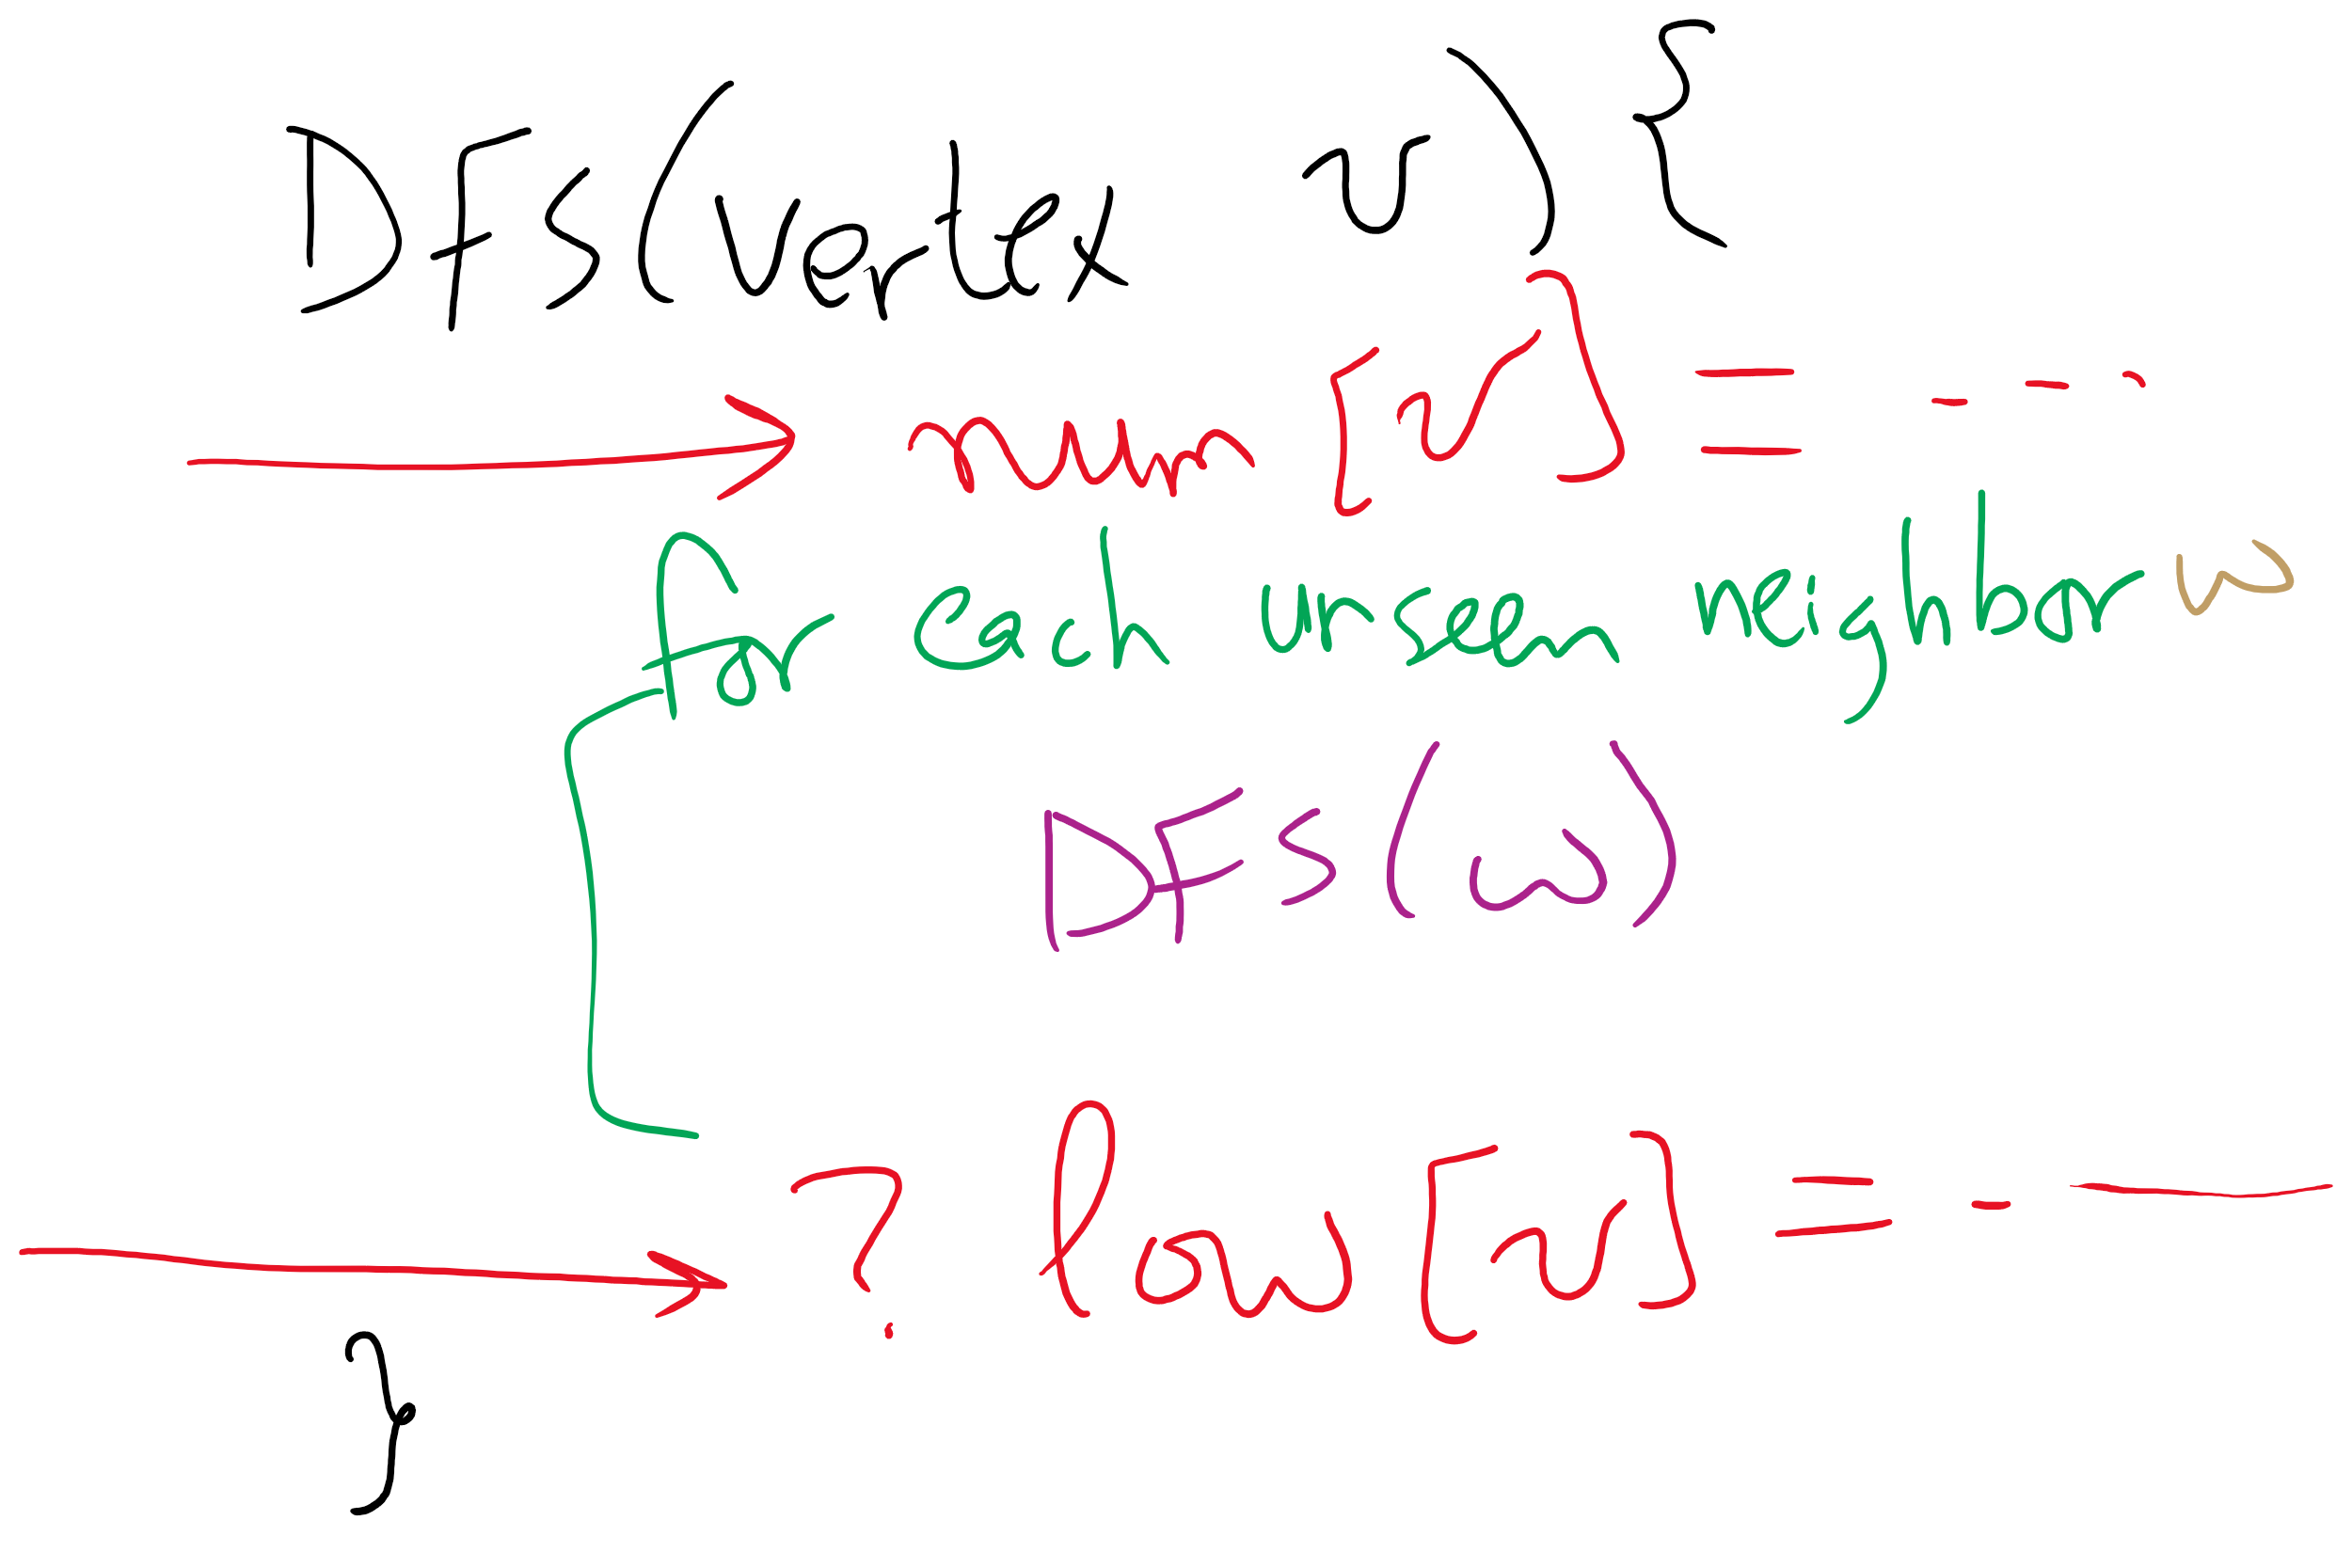 DFS(vertex v){
num[v] = - - -
for each unseen neighbor w
DFS(w)
? low[v] = - -
}